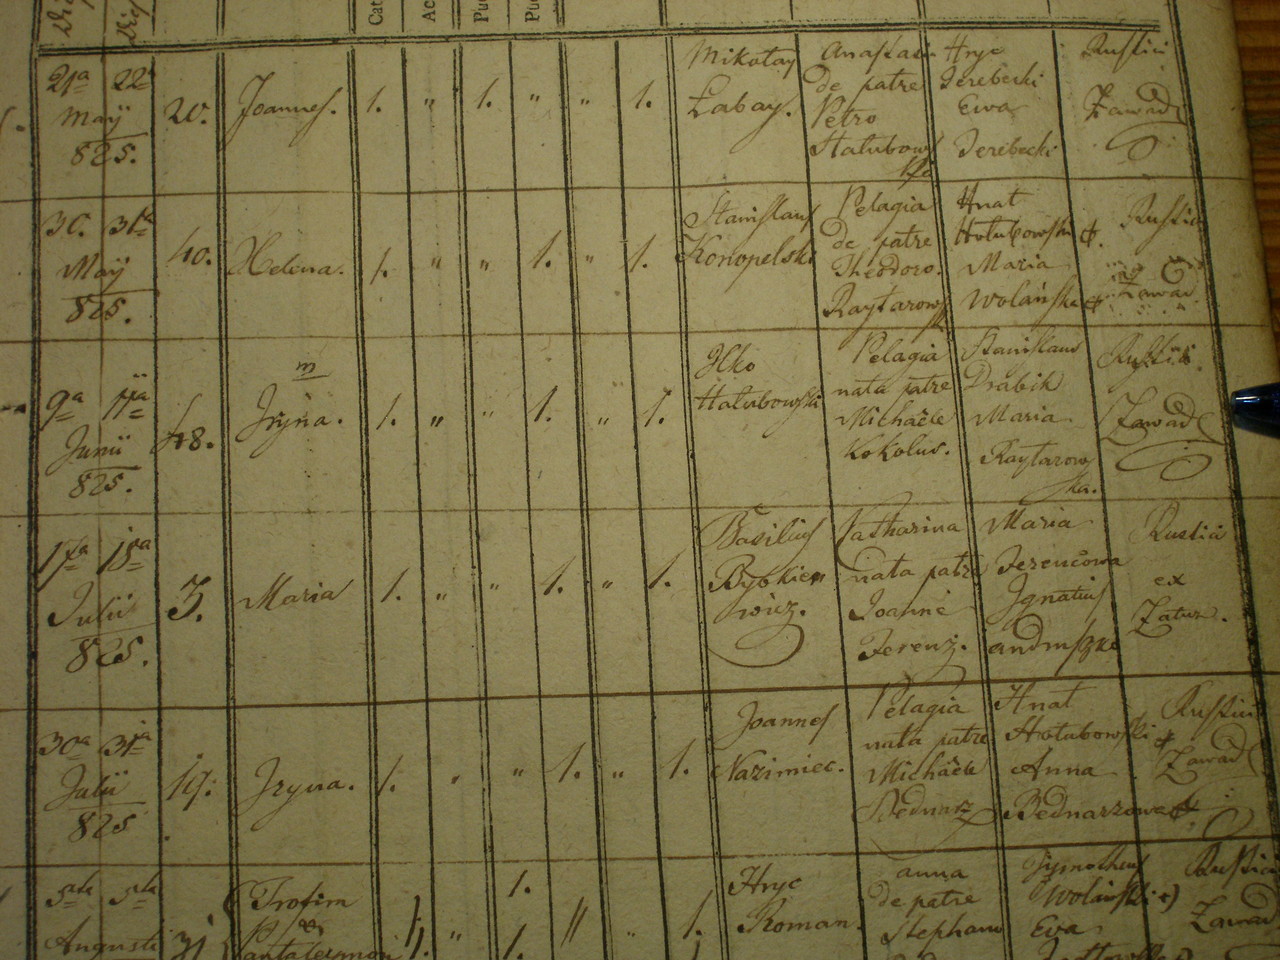 Cat
Ac
Pu
Pu
21a 22a
May
825.
20.
Joannes.
1. " 1. " " 1.
Mikołay
Łabay.
Anastasia
de patre
Petro
Hałubow
Hryc
Jerebecki
Ewa
Jerebecki
Rustici
Zawad
30. 31a
May
825.
40.
Helena.
1. " " 1. " 1.
Stanislaus
Konopelski
Pelagia
de patre
Theodoro.
Raytarows
Hnat
Hołubowski
Maria
Wolańska
Rustici
Zawad
9a 11a
Junii
825.
m
Iryna.
1. " " 1. " 1.
Ilko
Hałubowski
Pelagia
nata patre
Michaele
Kokolus.
Stanislaus
Drabik
Maria
Raytarow
ska.
Rustici
Zawad
17a 18a
Julii
825.
3.
Maria
1. " " 1. " 1.
Basilius
wicz.
Catharina
nata patre
Joanne
Ferenz.
Maria
Ferencowa
Ignatius
Andruszko
Rustici
ex
Zatur.
30a 31a
Julii
825
19.
Iryna.
1. " " 1. " 1.
Joannes
Nazimiec.
Pelagia
nata patre
Michaele
Bednarz
Hnat
Hołubowski
Anna
Bednarzowa
Rustici
Zawad
5ta 5ta
Augusti
31
Trofim
Pantaleymon
1.
1.
1.
Hryc
Roman.
Anna
de patre
Stephano
Tymotheus
Wolański
Eva
Rustici
Zawad